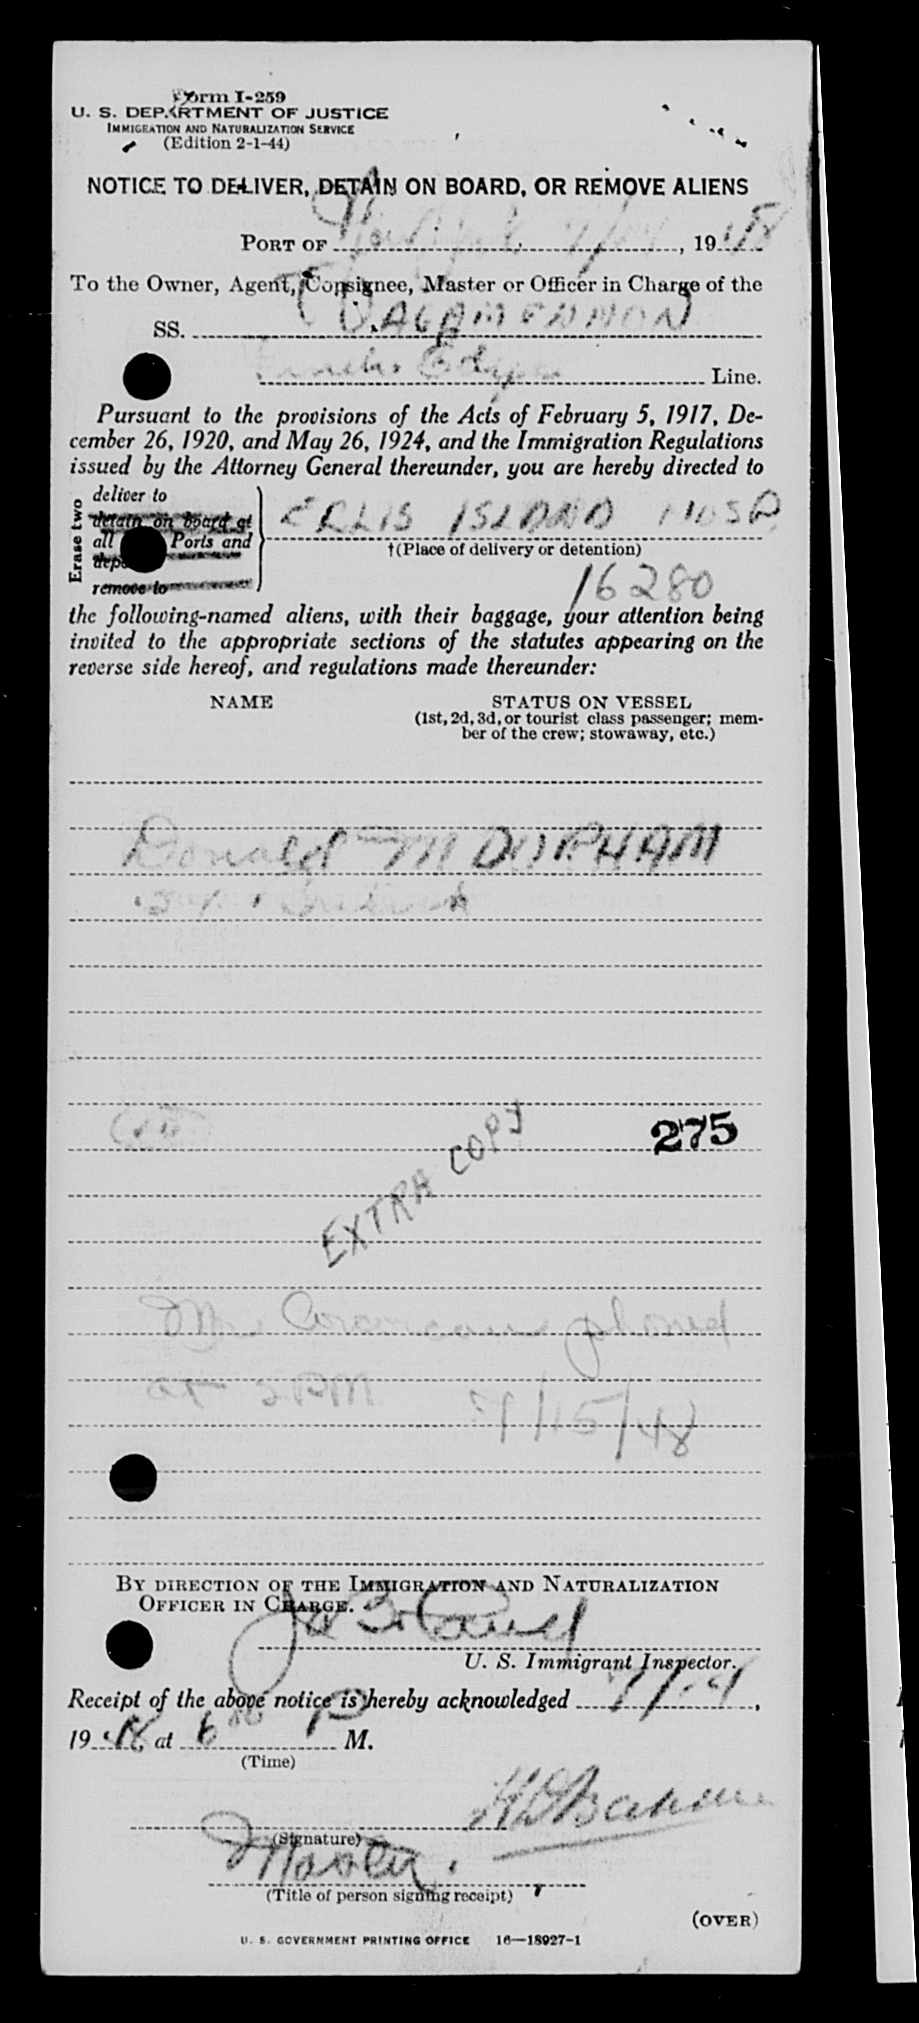 Form I-259
U. S. DEPARTMENT OF JUSTICE
IMMIGRATION AND NATURALIZATION SERVICE
(Edition 2-1-44)
NOTICE TO DELIVER, DETAIN ON BOARD, OR REMOVE ALIENS
PORT OF , 1948
To the Owner, Agent, Consignee, Master or Officer in Charge of the
SS. AGAMEMNON
Line.
Pursuant to the provisions of the Acts of February 5, 1917, De-
cember 26, 1920, and May 26, 1924, and the Immigration Regulations
issued by the Attorney General thereunder, you are hereby directed to
Erase two
deliver to
detain on board at
all Ports and
remove to
ELLIS ISLAND HOSP
†(Place of delivery or detention)
16280
the following-named aliens, with their baggage, your attention being
invited to the appropriate sections of the statutes appearing on the
reverse side hereof, and regulations made thereunder:
NAME STATUS ON VESSEL
(1st, 2d, 3d, or tourist class passenger; mem-
ber of the crew; stowaway, etc.)
Donald M DURHAM
275
EXTRA COPY
phoned
at 2 PM 9/15/48
BY DIRECTION OF THE IMMIGRATION AND NATURALIZATION
OFFICER IN CHARGE.
U. S. Immigrant Inspector.
Receipt of the above notice is hereby acknowledged
1948 at 6 00 P M.
(Time)
(Signature)
Master.
(Title of person signing receipt)
(OVER)
U. S. GOVERNMENT PRINTING OFFICE 16—18927-1